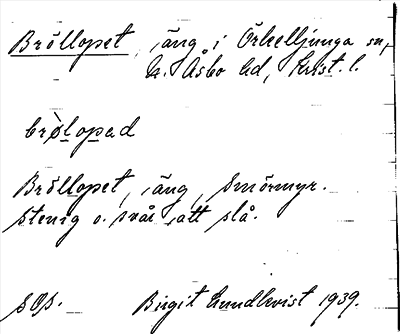 Bröllopet, äng i Örkelljunga sn,
N. Åsbo hd, Krist. l.
brø̀lopad
Bröllopet, äng, Smörmyr.
Stenig o. svår att slå.
SOS. Birgit Lundkvist 1939.